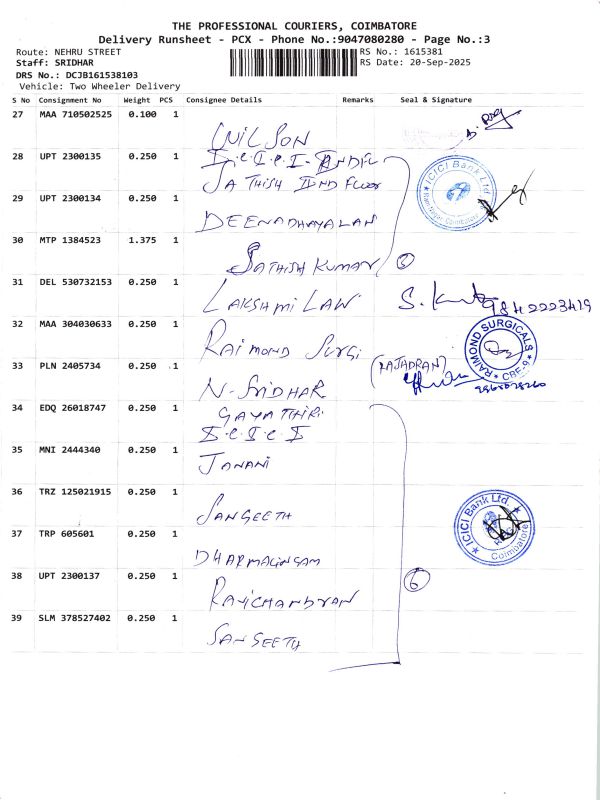 THE PROFESSIONAL COURIERS, COIMBATORE
Delivery Runsheet - PCX - Phone No.:9047080280 - Page No.:3
Route: NEHRU STREET
RS No.: 1615381
Staff: SRIDHAR
RS Date: 20-Sep-2025
DRS No.: DCJB161538103
Vehicle: Two Wheeler Delivery
S No Consignment No Weight PCS Consignee Details Remarks Seal & Signature
27 MAA 710502525 0.100 1
WILSON
28 UPT 2300135 0.250 1
I.C.I.C.I-
SATHISH IInd Floor
ICICI Bank Ltd
29 UPT 2300134 0.250 1
DEENADHAYALAN
30 MTP 1384523 1.375 1
SATHISH KUMAR
31 DEL 530732153 0.250 1
LAKSHMI LAW 9842223419
32 MAA 304030633 0.250 1
RAIMOND SURGI
RAIMOND SURGICALS
CBE-9
33 PLN 2405734 0.250 1
(RAJADRAN)
N-SRIDHAR
34 EDQ 26018747 0.250 1
GAYATHIRI
I.C.I.C.I
35 MNI 2444340 0.250 1
JANANI
36 TRZ 125021915 0.250 1
SANGEETH
ICICI Bank Ltd.
Coimbatore
37 TRP 605601 0.250 1
DHARMALINGAM
38 UPT 2300137 0.250 1
6
RAVICHANDRAN
39 SLM 378527402 0.250 1
SANGEETH